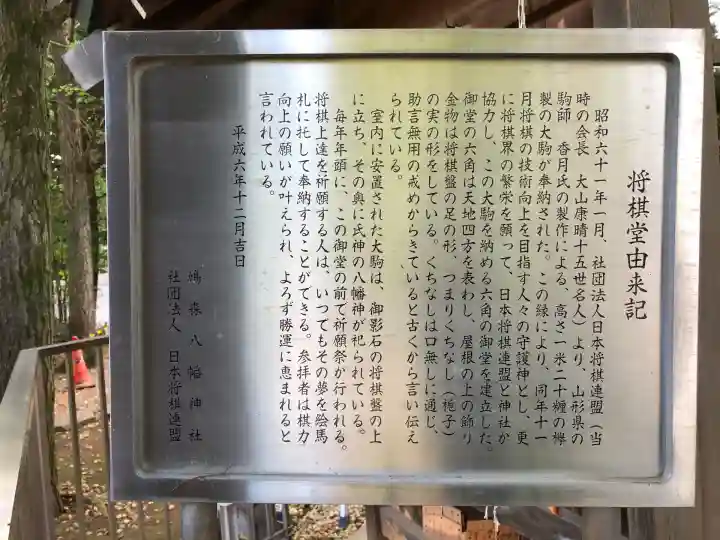 将棋堂由来記
昭和六十一年一月、社団法人日本将棋連盟（当
時の会長　大山康晴十五世名人）より、山形県の
駒師　香月氏の製作による、高さ一米二十糎の欅
製の大駒が奉納された。この縁により、同年十一
月将棋の技術向上を目指す人々の守護神とし、更
に将棋界の繁栄を願って、日本将棋連盟と神社が
協力し、この大駒を納める六角の御堂を建立した。
御堂の六角は天地四方を表わし、屋根の上の飾り
金物は将棋盤の足の形、つまりくちなし（梔子）
の実の形をしている。くちなしは口無しに通じ、
助言無用の戒めからきていると古くから言い伝え
られている。
室内に安置された大駒は、御影石の将棋盤の上
に立ち、その奥に氏神の八幡神が祀られている。
毎年年頭に、この御堂の前で祈願祭が行われる。
将棋上達を祈願する人は、いつでもその夢を絵馬
札に托して奉納することができる。参拝者は棋力
向上の願いが叶えられ、よろず勝運に恵まれると
言われている。
平成六年十二月吉日
鳩森八幡神社
社団法人　日本将棋連盟